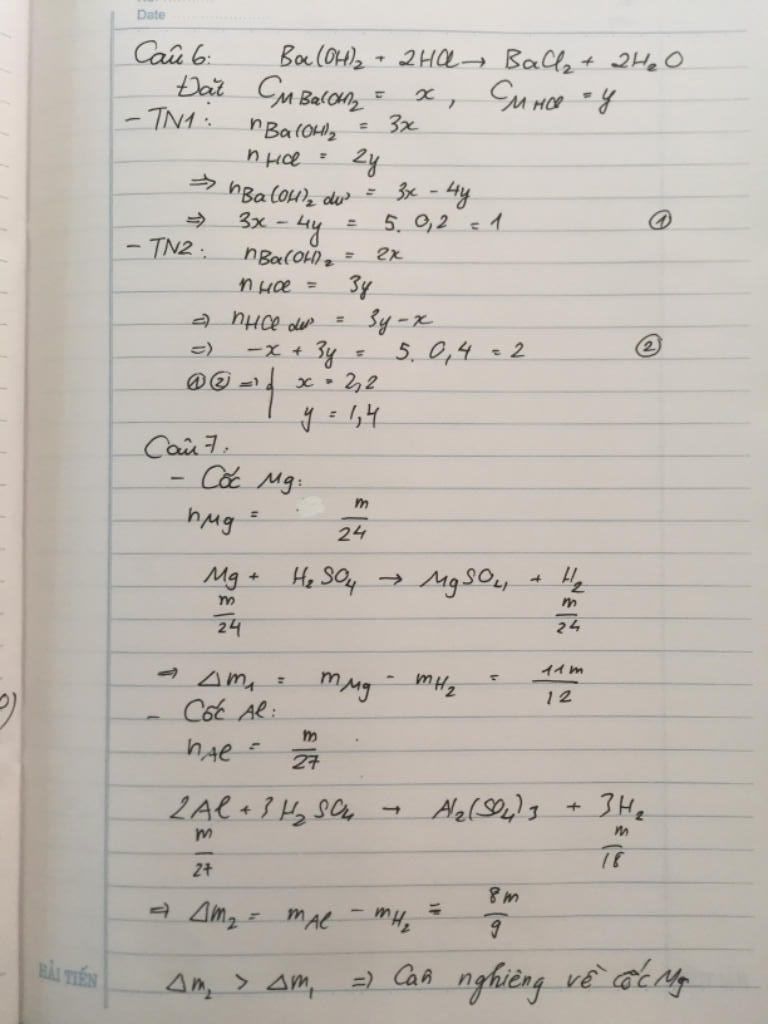 Date
Câu 6: Ba(OH)₂ + 2HCl → BaCl₂ + 2H₂O
Đặt C_M Ba(OH)₂ = x , C_M HCl = y
- TN1: n_Ba(OH)₂ = 3x
n_HCl = 2y
⇒ n_Ba(OH)₂ dư = 3x - 4y
⇒ 3x - 4y = 5. 0,2 = 1 ①
- TN2: n_Ba(OH)₂ = 2x
n_HCl = 3y
⇒ n_HCl dư = 3y - x
⇒ -x + 3y = 5. 0,4 = 2 ②
①② ⇒ { x = 2,2
y = 1,4
Câu 7:
- Cốc Mg:
n_Mg = m/24
Mg + H₂SO₄ → MgSO₄ + H₂
m/24 m/24
⇒ Δm₁ = m_Mg - m_H₂ = 11m/12
- Cốc Al:
n_Al = m/27
2Al + 3H₂SO₄ → Al₂(SO₄)₃ + 3H₂
m/27 m/18
⇒ Δm₂ = m_Al - m_H₂ = 8m/9
Δm₂ > Δm₁ ⇒ Cân nghiêng về cốc Mg
HẢI TIẾN